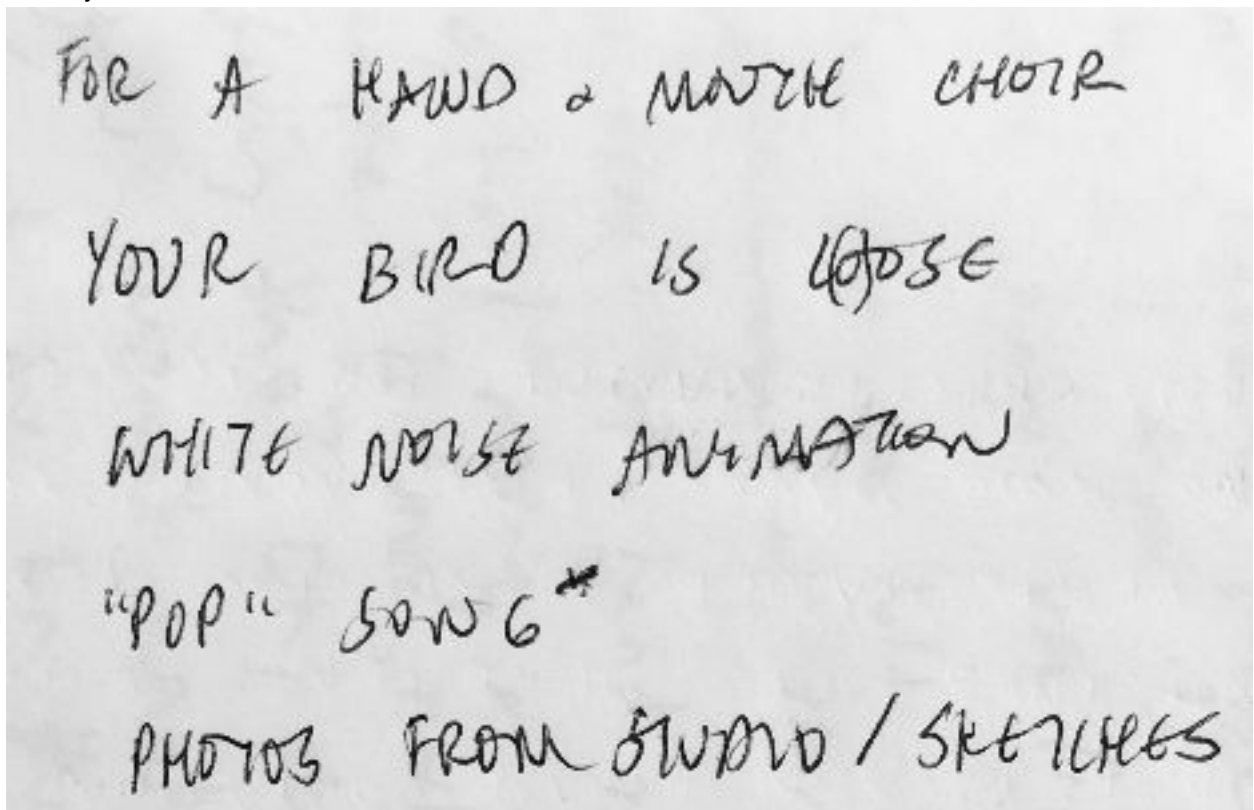 FOR A HAND & MOUTH CHOIR
YOUR BIRD IS LO(O)SE
WHITE NOISE ANIMATION
"POP" SONG*
PHOTOS FROM STUDIO / SKETCHES